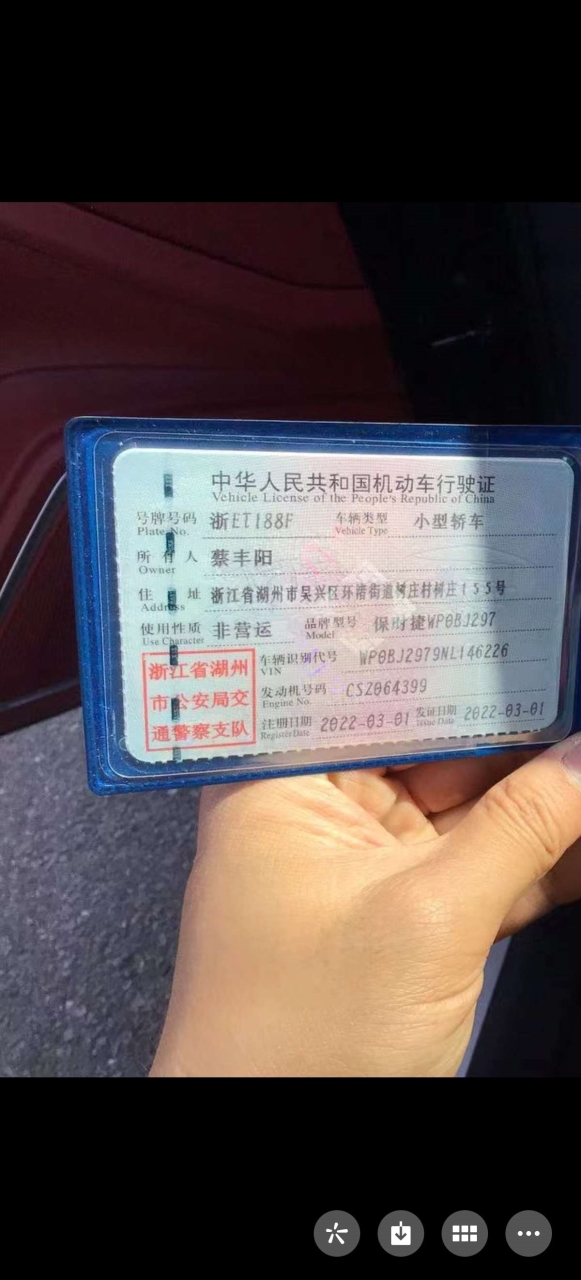 中华人民共和国机动车行驶证
Vehicle License of the People's Republic of China
号牌号码 浙ET188F 车辆类型 小型轿车
Plate No. Vehicle Type
所有人 蔡丰阳
Owner
住址 浙江省湖州市吴兴区环渚街道树庄村树庄155号
Address
使用性质 非营运 品牌型号 保时捷WP0BJ297
Use Character Model
浙江省湖州
市公安局交
通警察支队
车辆识别代号 WP0BJ2979NL146226
VIN
发动机号码 CSZ064399
Engine No.
注册日期 2022-03-01 发证日期 2022-03-01
Register Date Issue Date